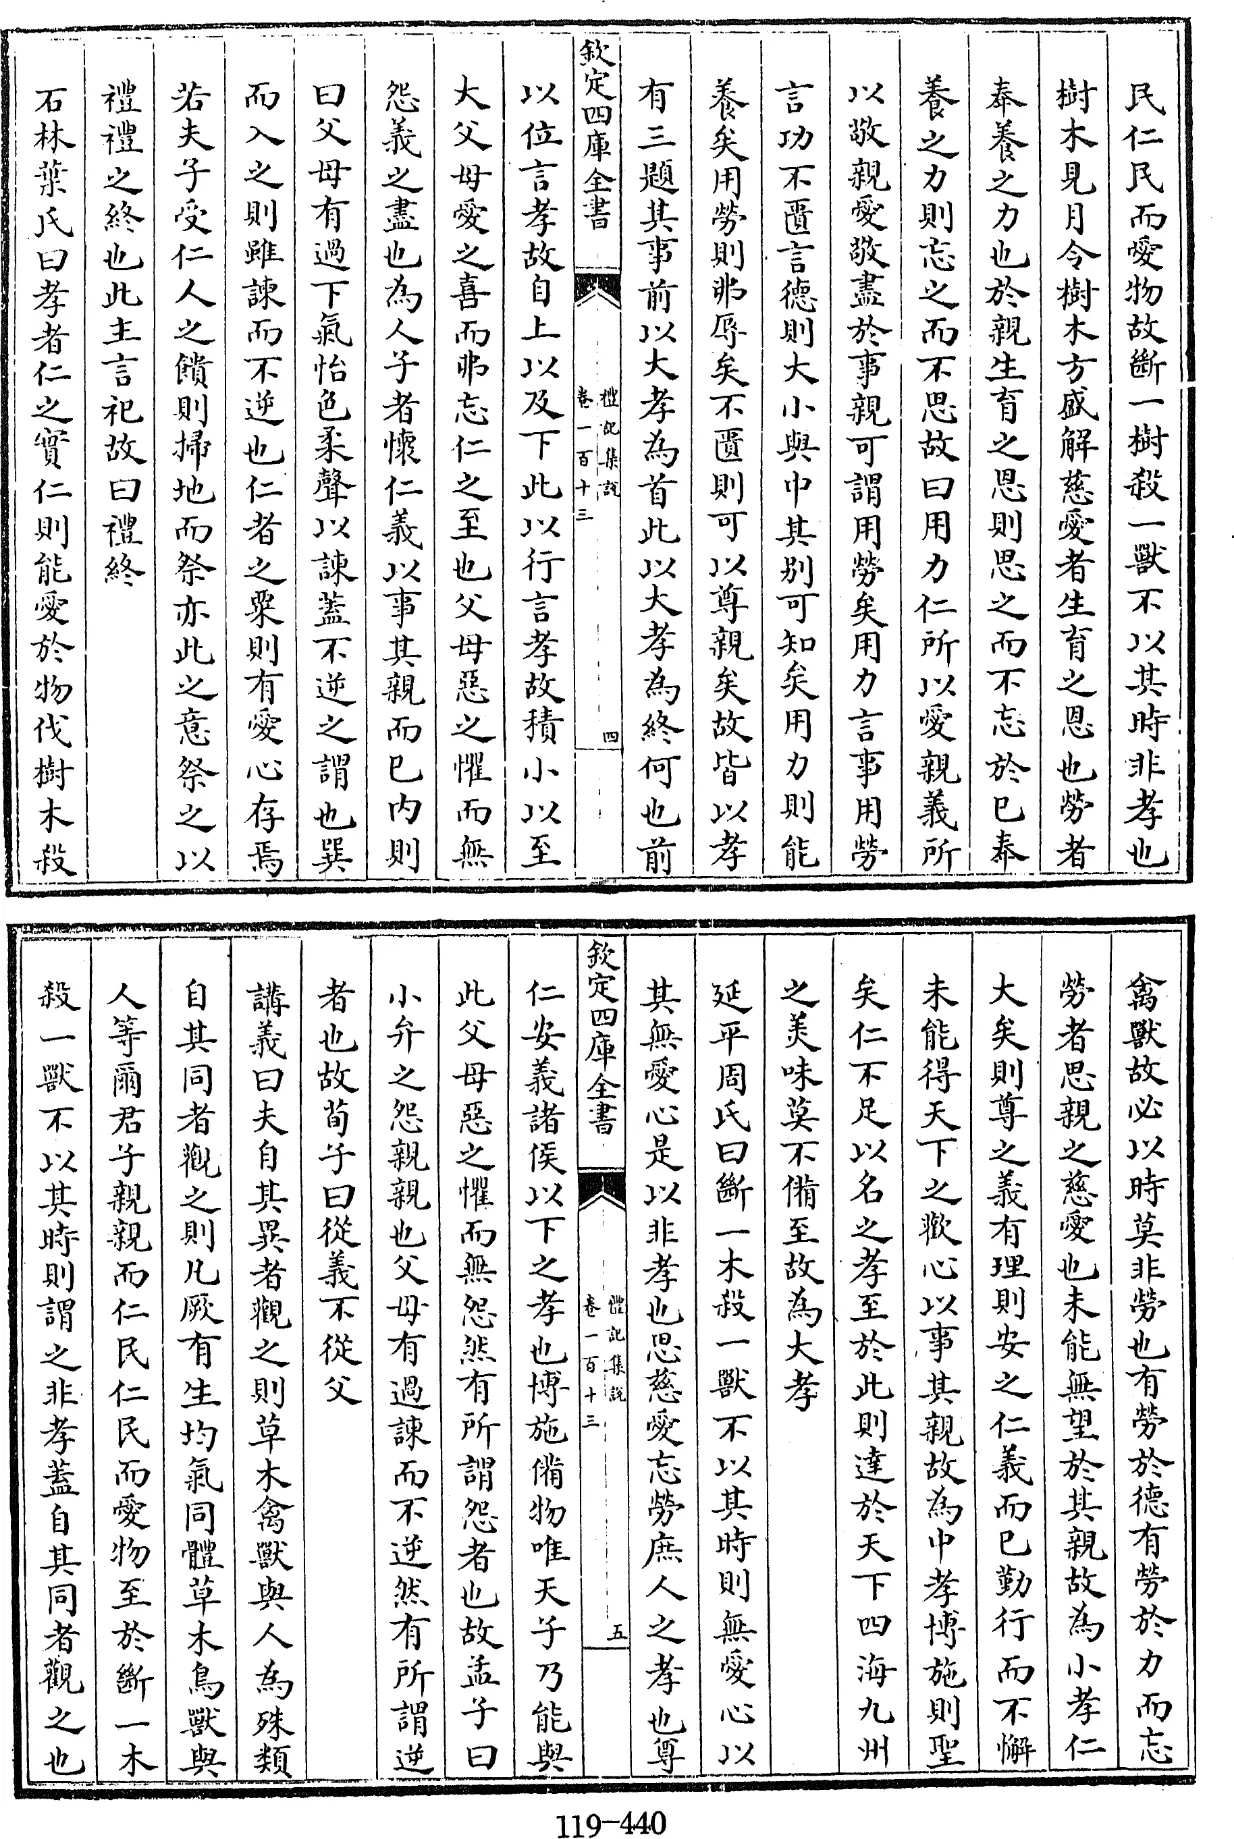 民仁民而愛物故斷一樹殺一獸不以其時非孝也
樹木見月令樹木方盛解慈愛者生育之恩也勞者
奉養之力也於親生育之恩則思之而不忘於已奉
養之力則忘之而不思故曰用力仁所以愛親義所
以敬親愛敬盡於事親可謂用勞矣用力言事用勞
言功不匱言德則大小與中其別可知矣用力則能
養矣用勞則弗辱矣不匱則可以尊親矣故皆以孝
有三題其事前以大孝為首此以大孝為終何也前
欽定四庫全書
禮記集說
卷一百十三
四
以位言孝故自上以及下此以行言孝故積小以至
大父母愛之喜而弗忘仁之至也父母惡之懼而無
怨義之盡也為人子者懷仁義以事其親而已內則
曰父母有過下氣怡色柔聲以諫蓋不逆之謂也巽
而入之則雖諫而不逆也仁者之粟則有愛心存焉
若夫子受仁人之饋則掃地而祭亦此之意祭之以
禮禮之終也此主言祀故曰禮終
石林葉氏曰孝者仁之實仁則能愛於物伐樹木殺
禽獸故必以時莫非勞也有勞於德有勞於力而忘
勞者思親之慈愛也未能無望於其親故為小孝仁
大矣則尊之義有理則安之仁義而已勤行而不懈
未能得天下之歡心以事其親故為中孝博施則聖
矣仁不足以名之孝至於此則達於天下四海九州
之美味莫不備至故為大孝
延平周氏曰斷一木殺一獸不以其時則無愛心以
其無愛心是以非孝也思慈愛忘勞庶人之孝也尊
欽定四庫全書
禮記集說
卷一百十三
五
仁安義諸侯以下之孝也博施備物唯天子乃能與
此父母惡之懼而無怨然有所謂怨者也故孟子曰
小弁之怨親親也父母有過諫而不逆然有所謂逆
者也故荀子曰從義不從父
講義曰夫自其異者觀之則草木禽獸與人為殊類
自其同者觀之則凡厥有生均氣同體草木鳥獸與
人等爾君子親親而仁民仁民而愛物至於斷一木
殺一獸不以其時則謂之非孝蓋自其同者觀之也
119-440